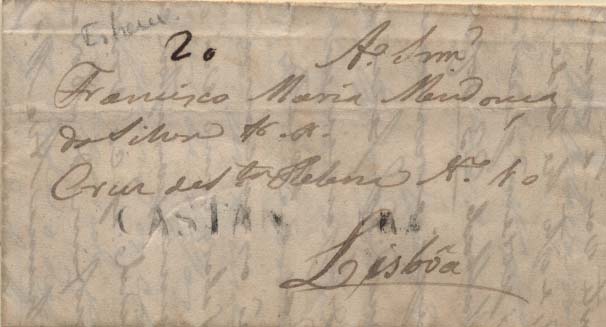 20
Ao. Snr.
Francisco Maria Mendonça
da Silva
Cruz de Sta. Helena No.
CASTAN
Lisbôa